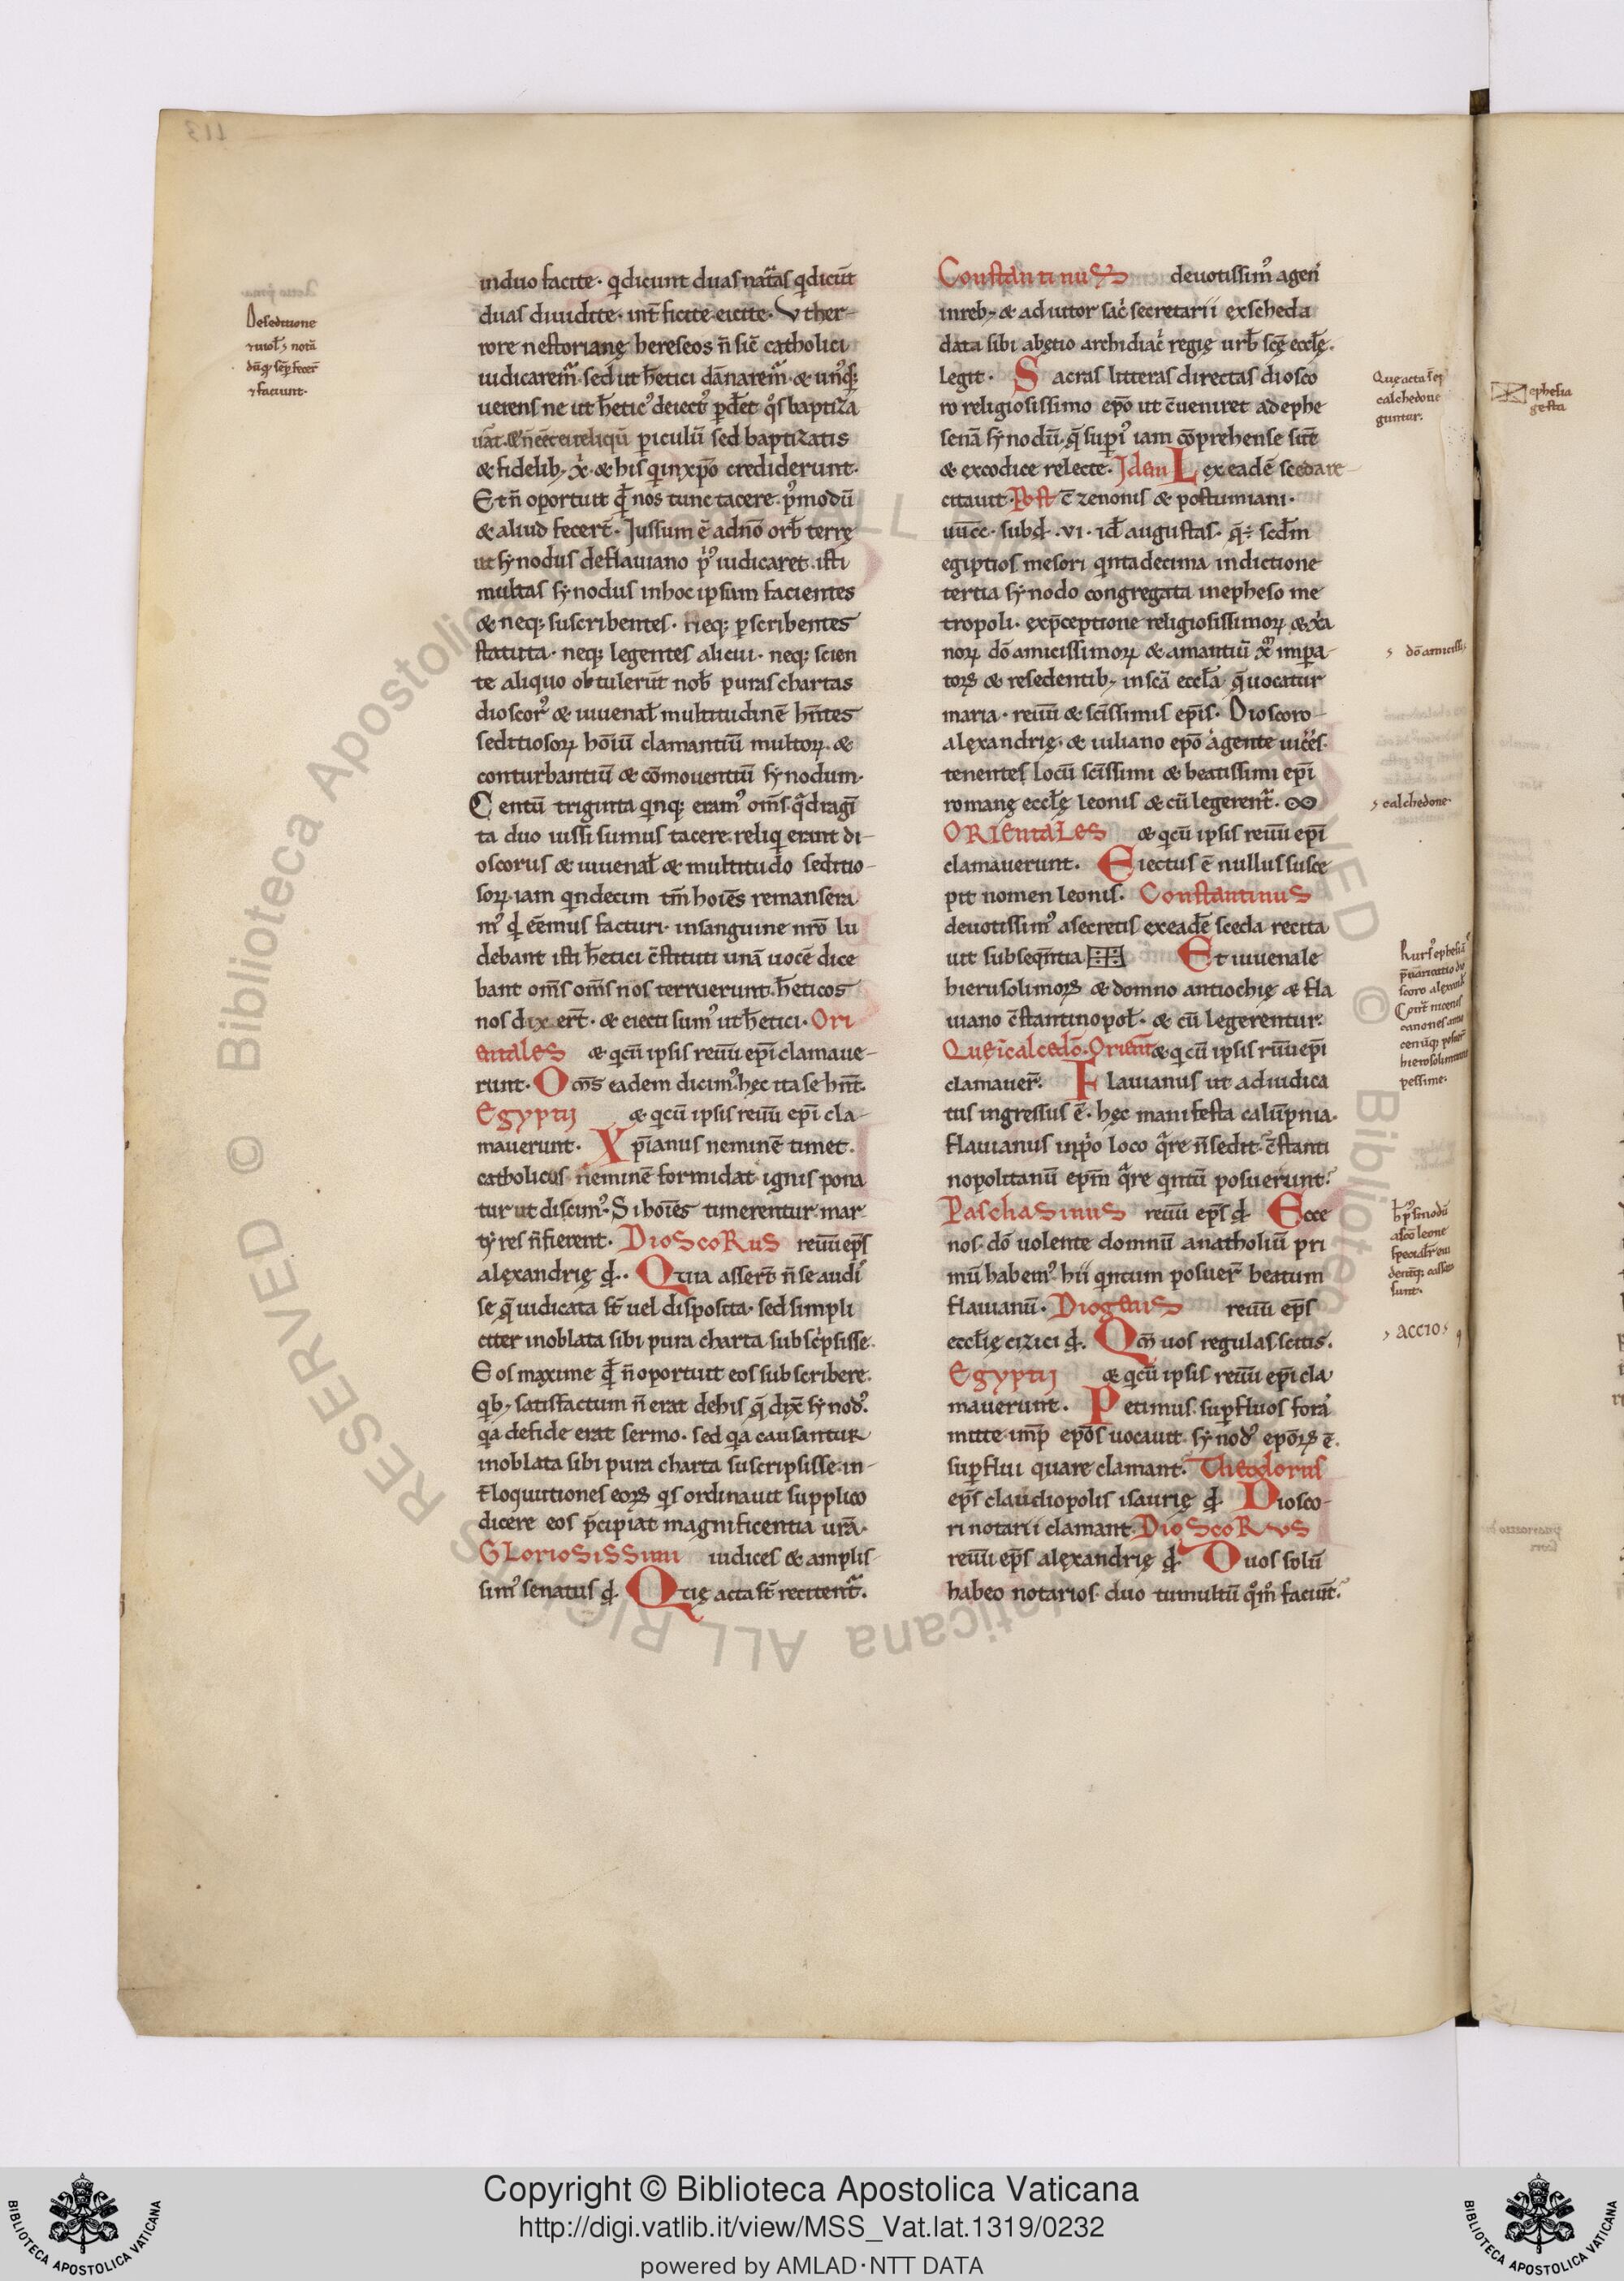 induo facite· qdicunt duas nat̃as qdicūt
duas diuidite· int̃ficite eicite· Vther-
rore nestorianę hereseos ñ sic̃ catholici
iudicarem̃· sed ut h̃etici dānarem̃· &
uerens ne ut h̃etic᾿ deiect᾿ baptiza
piculū sed baptizatis
& fidelib; & his crediderunt·
Et ñ oportuit nos tunc tacere· p᾿modū
& aliud fecert̃· Iussum ē adnō orb̃ terrę
ut synodus deflauiano p᾿᾿ iudicaret· isti
multas synodus inhoc ipsum facientes
& neq; suscribentes· neq; pscribentes
statuta· neq; legentes alicui· neq; scien
te aliquo obtulerūt nob̃ puras chartas
dioscor᾿ & iuuenał multitudinē hñtes
seditiosoꝝ hōiū clamantiū multoꝝ· &
conturbantiū & cōmouentiū synodum·
Centū triginta qnq; eram᾿ om̃s· qdragī
ta duo iussi sumus tacere· reliq erant di-
oscorus & iuuenał & multitudo seditio-
soꝝ· iam qndecim tm̃ hoiēs remansera
m᾿ qd eēmus facturi· insanguine nrō lu
debant isti h̃etici c̃stituti unā uocē dice
bant om̃s om̃s nos terruerunt· h̃eticos
nos dixert̃· & eiecti sum᾿ ut h̃etici· Ori
entales & qcū ipsis reuū epī clamaue-
runt· Om̃s eadem dicim᾿ hęc ita se hñt·
Egyptij & qcū ipsis reuū epī cla-
mauerunt· Xpīanus neminē timet·
catholicus neminē formidat ignis pona
tur ut discim᾿· Si hoiēs timerentur mar
tyres ñ fierent· DioScoRuS reuū ep̃s
alęxandrię đ·· Quia assert̃ ñ se audi᾿
se q̃ iudicata st̃ uel disposita· sed simpli
citer inoblata sibi pura charta subsc͛psisse·
Eos maxime qđ ñ oportuit eos subscribere·
qb; satisfactum ñ erat dehis q̃ dix̃ synod᾿·
qa defide erat sermo· sed qa causantur
inoblata sibi pura charta suscripsisse· in-
t̃loquutiones eoꝝ qs ordinauit supplico
dicere eos p̃cipiat magnificentia urā·
GLorioSiSSimi iudices & amplis-
sim᾿ senatus đ· Quę acta st̃ recitent̃·
ConstantinuS deuotissim᾿ agen᾿
inreb; & adiutor sac᾿ secretarii exscheda
data sibi abętio archidiac᾿ regię urb̃ scę ecclę·
legit· Sacras litteras directas diosco
ro religiosissimo epō ut c̃ueniret adephe
senā synodū· q̃ sup᾿i᾿ iam cōprehense sūt
& excodice relecte· Idem L exeadē scedare-
citauit· Post c̃ zenonis & postumiani·
uūcc· subđ· ·vi· iđ augustas· q̃ scđm
egiptios mesori qntadecima indictione
tertia synodo congregata inepheso me
tropoli· exp̃ceptione religiosissimoꝝ & xa
noꝝ dō amicissimoꝝ & amantiū impa-
toꝝ & residentib; inscā eccła q̃ uocatur
maria· reuū & scīssimis epīs· Dioscoro-
alęxandrię· & iuliano epō agente uices·
tenentes locū scīssimi & beatissimi epī
romanę eccłę leonis & cū legerent̃·
ORIEntaLes & qcū ipsis reuū epī
clamauerunt· Eiectus ē nullus susce
pit nomen leonis· ConstantinuS
deuotissim᾿ asecretis exeadē sceda recita
uit subseqñtia Et iuuenale
hierusolimoꝝ & domno antiochię & fla
uiano c̃stantinopoł· & cū legerentur·
Que ī calcedō· Orient̃ & qcū ipsis rūū epī
clamauer̃· Flauianus ut adiudica
tus ingressus ē· hęc manifesta calūpnia·
flauianus inp̃o loco qre ñ sedit· c̃stanti
nopolitanū epm̃ qre qntū posuerunt·
PaschaSinuS reuū ep̃s đ· Ecce
nos· dō uolente domnū anatholiū pri
mū habem᾿· hii qntum posuer̃ beatum
flauianū· DiogeniS reuū ep̃s
eccłię cizici đ· Qm̃ uos regulas scitis·
Egyptij & qcū ipsis reuū epī cla
mauerunt· Petimus· supfluos fora᾿
mitte· imp̃ epōs uocauit· synod᾿ epōꝝ ē·
supflui quare clamant· Theodorus
ep̃s claudiopolis isaurię đ· Diosco-
ri notarii clamant· DioScoRuS
reuū ep̃s alęxandrię đ· Duos solū
habeo notarios· duo tumultū facuīt·
De seditione
dāq; sēp fecer̃
& faciunt·
Que acta
calchedone
guntur·
ephesia
gesta
dō amicissi
calchedone·
Rurs᾿ ephesi
scoro alexand
canones
hierosolimitanus
pessime·
scō leone
sunt·
ACCIO
113
© Biblioteca Apostolica Vaticana ALL RIGHTS RESERVED
Copyright © Biblioteca Apostolica Vaticana
http://digi.vatlib.it/view/MSS_Vat.lat.1319/0232
powered by AMLAD·NTT DATA
BIBLIOTECA APOSTOLICA VATICANA
BIBLIOTECA APOSTOLICA VATICANA